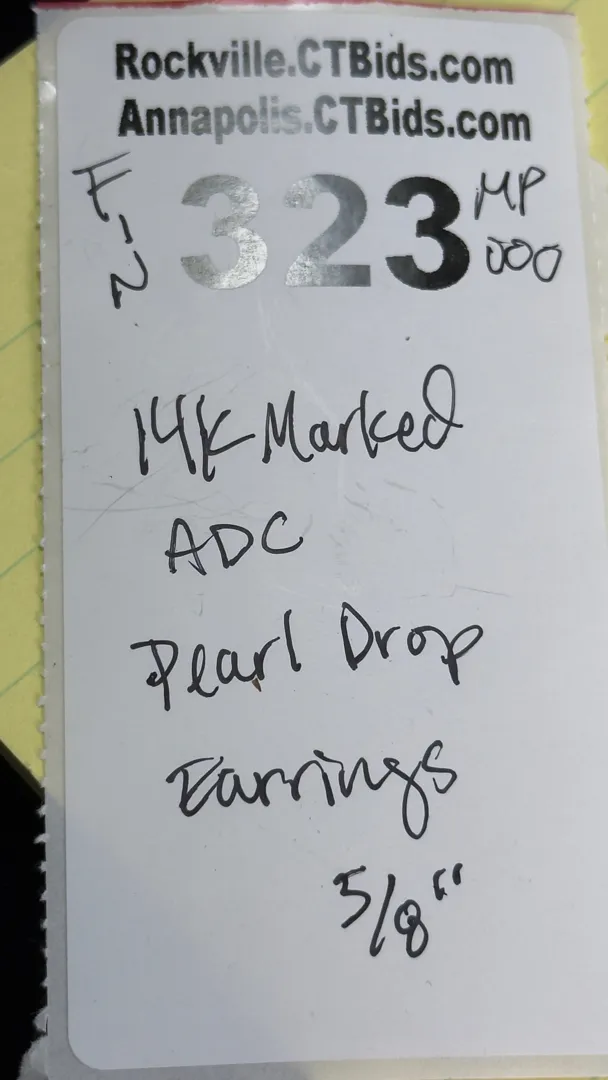 Rockville.CTBids.com
Annapolis.CTBids.com
F-2 323 MP
000
14K Marked
ADC
Pearl Drop
Earrings
5/8"